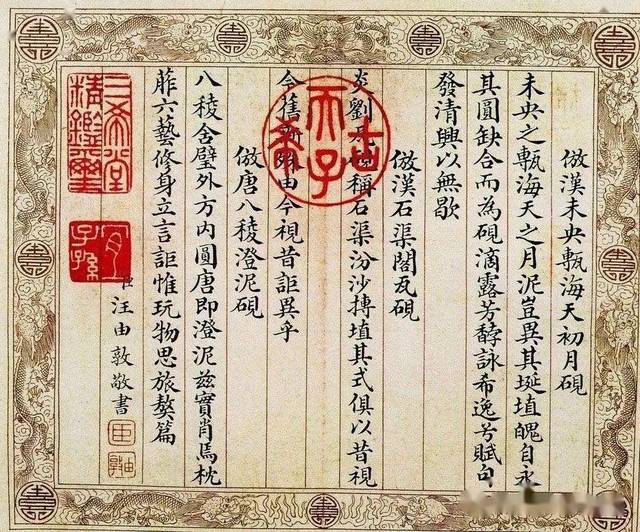 倣漢未央甎海天初月硯
未央之甎海天之月泥豈異其埏埴魄自永
其圓缺合而為硯滴露芳馞詠希逸兮賦句
發清興以無歇
倣漢石渠閣瓦硯
炎劉稱石渠汾沙摶埴其式俱以昔視
今舊由今視昔詎異乎
倣唐八稜澄泥硯
八稜含璧外方內圓唐即澄泥茲實肖焉枕
葄六藝修身立言詎惟玩物思旅獒篇
臣汪由敦敬書
古希天子
三希堂精鑑璽
宜子孫
由敦